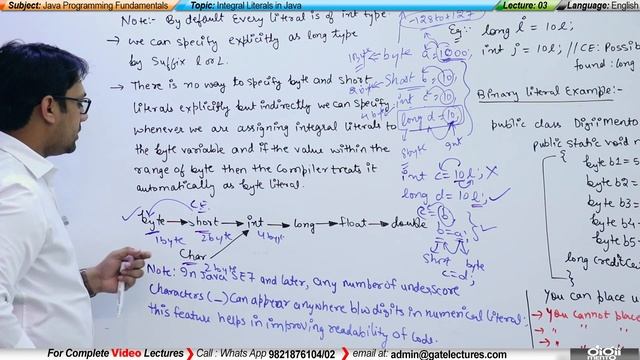 Subject: Java Programming Fundamentals
Topic: Integral Literals in Java
Lecture: 03
Language: English
Note:- By default Every literal is of int type
→ we can specify explicitly as long type
by Suffix l or L.
→ There is no way to specify byte and short
literals explicitly but indirectly we can specify
whenever we are assigning integral literals to
the byte variable and if the value within the
range of byte then the Compiler treats it
automatically as byte literal.
C.E.
byte → short → int → long → float → double
1byte 2byte 4byte
Char
2byte
Note: In Java SE7 and later, any number of underscore
Characters (_) Can appear anywhere b/w digits in numerical literal.
this feature helps in improving readability of Code.
-128 to 127
byte a = 1000;
Short b = 10;
int c = 10;
long d = 10;
8byte int
int c = 10l; X
long d = 10l; ✓
b = a;
Short byte
c = d;
Eg:- long i = 10l;
int j = 10l; // CE: Possi
found: long
Binary literal Example:-
public class Digiimento
public static void
{
byte b1 = 5
byte b2 =
byte b3 =
byte b4 =
byte b5 =
long creditCa
}
You can place u
→ You cannot place
→ " "
→ " "
digii
MENTO
For Complete Video Lectures
Call : Whats App 9821876104/02
email at: admin@gatelectures.com